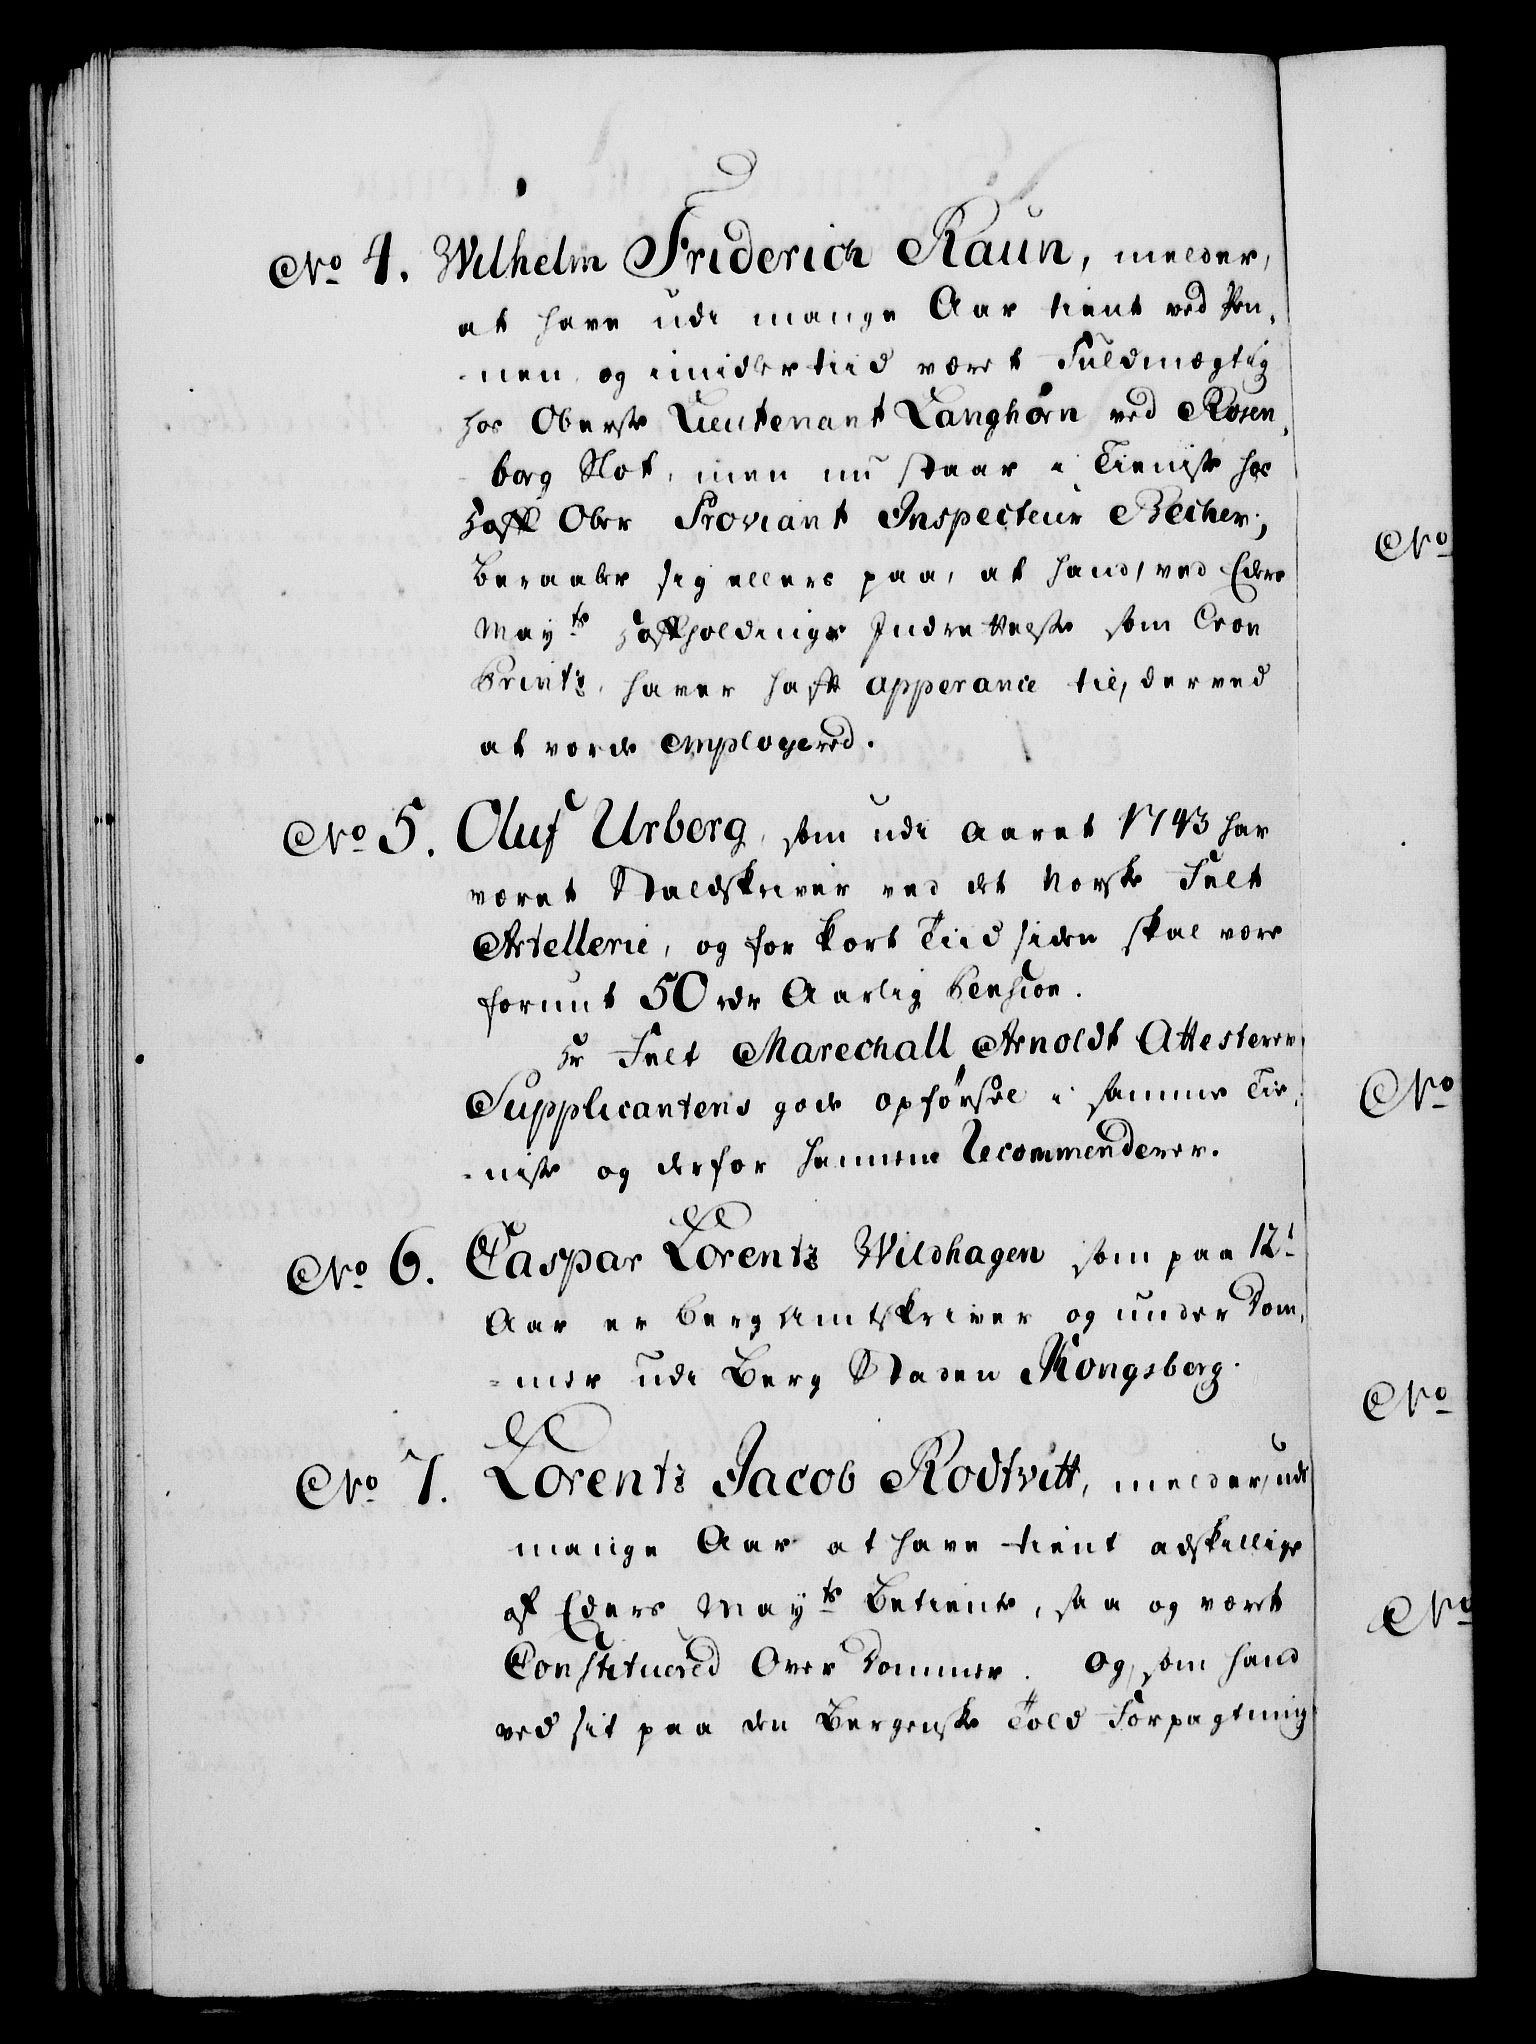 No 4. Wilhelm Friderich Raun, melder,
at have udi mange Aar tient ved Pen-
-nen, og imidlertiid været Fuldmægtig
hos Oberste Lieutenant Langhorn ved Rosen-
borg Slot, men nu staar i Tieniste hos
Hoff Ober Proviant Inspecteur Becher;
Beraaber sig ellers paa, at hand, ved Eders
Mayts Hoffholdings Indrettelse som Cron
Printz, haver hafft apperance til, derved
at vorde employered.
No 5. Oluf Urberg, som udi Aaret 1743 har
været Staldskriver ved det Norske Felt
Artellerie, og for kort Tiid siden skal være
forunt 50 rdr Aarlig Pension.
Hr Felt Marechall Arnoldt Attesterer
Supplicantens gode opførsel i samme Tie-
-niste og derfor hannem Recommenderer.
No 6. Caspar Lorentz Wildhagen som paa 12t
Aar er Berg Amtskriver og under Dom-
-mer udi Berg Staden Kongsberg.
No 7. Lorentz Jacob Rodtvitt, melder, udi
mange Aar at have tient adskellige
af Eders Mayts Betiente, saa og været
Constituered Over Dommer. Og, som hand
ved sit paa den Bergenske Told Forpagtning
No
No
No
No